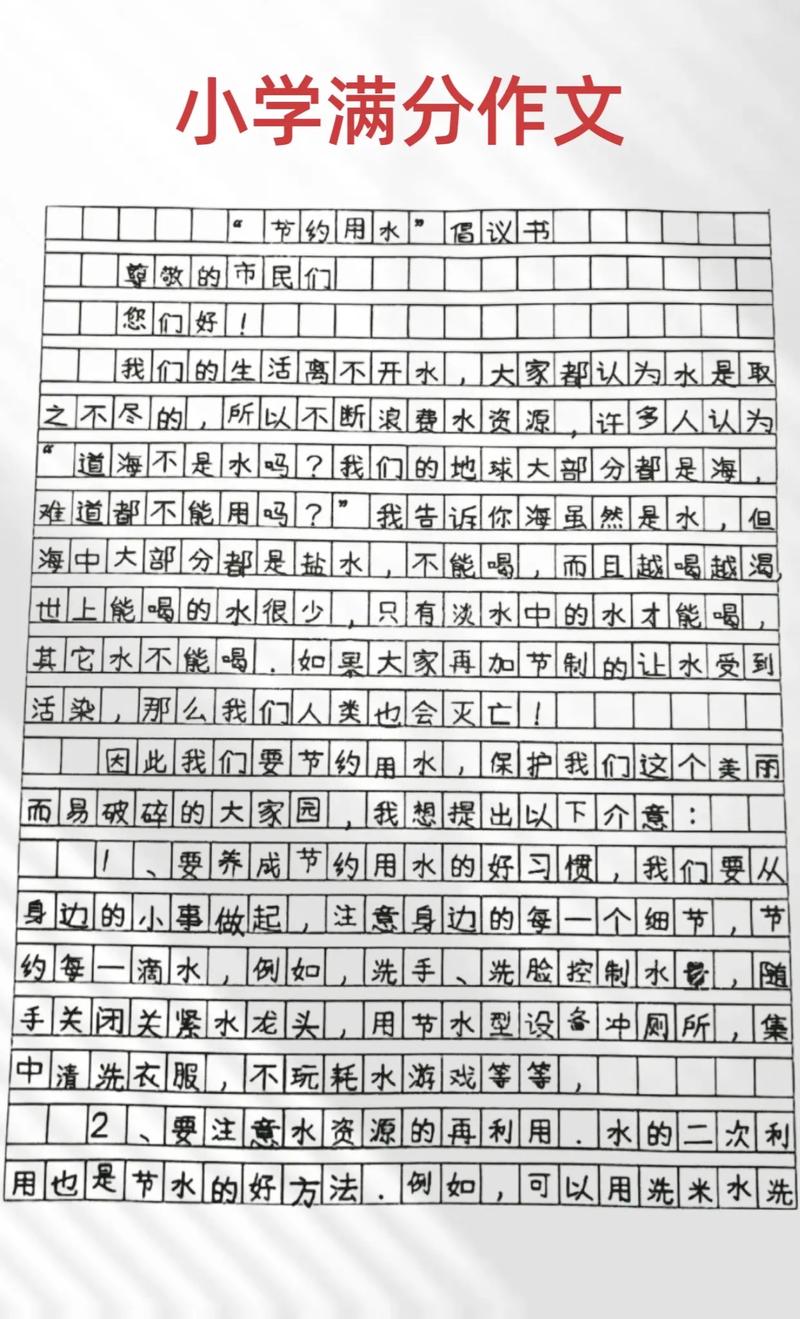 小学满分作文
“节约用水”倡议书
尊敬的市民们
您们好！
我们的生活离不开水，大家都认为水是取
之不尽的，所以不断浪费水资源，许多人认为
“道海不是水吗？我们的地球大部分都是海，
难道都不能用吗？”我告诉你海虽然是水，但
海中大部分都是盐水，不能喝，而且越喝越渴，
世上能喝的水很少，只有淡水中的水才能喝，
其它水不能喝．如果大家再加节制的让水受到
活染，那么我们人类也会灭亡！
因此我们要节约用水，保护我们这个美丽
而易破碎的大家园，我想提出以下介意：
1、要养成节约用水的好习惯，我们要从
身边的小事做起，注意身边的每一个细节，节
约每一滴水，例如，洗手、洗脸控制水量，随
手关闭关紧水龙头，用节水型设备冲厕所，集
中清洗衣服，不玩耗水游戏等等，
2、要注意水资源的再利用．水的二次利
用也是节水的好方法．例如，可以用洗米水洗